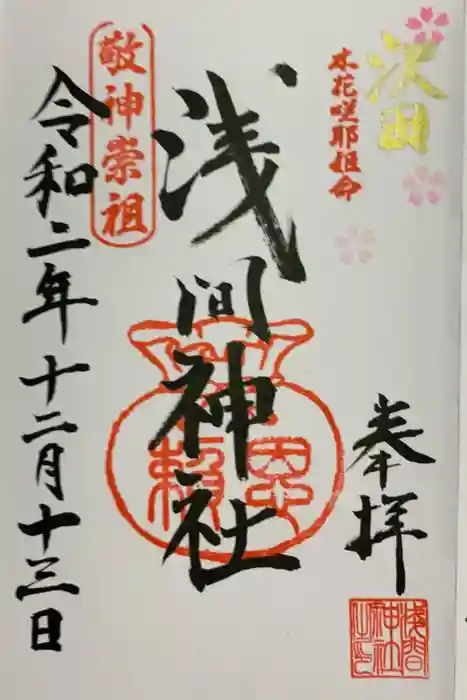 沢田
木花咲耶姫命
奉拝
浅間神社
恩頼
敬神崇祖
令和二年十二月十三日
浅間神社之印